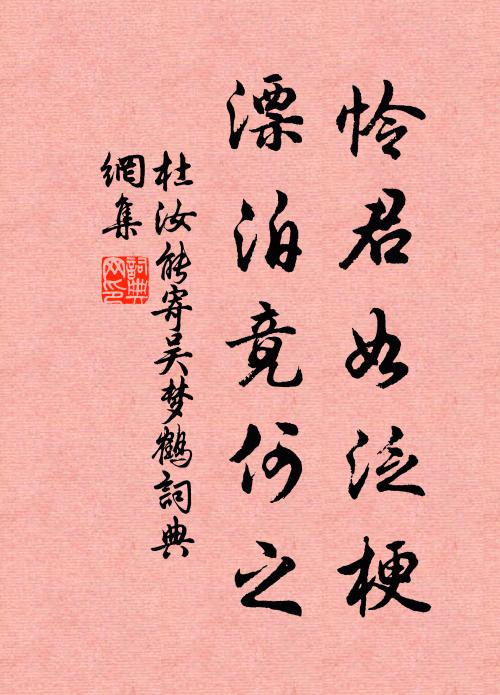 怜君如泛梗
漂泊竟何之
杜汝能寄吴梦鹤詞典
網集
詞典
网印